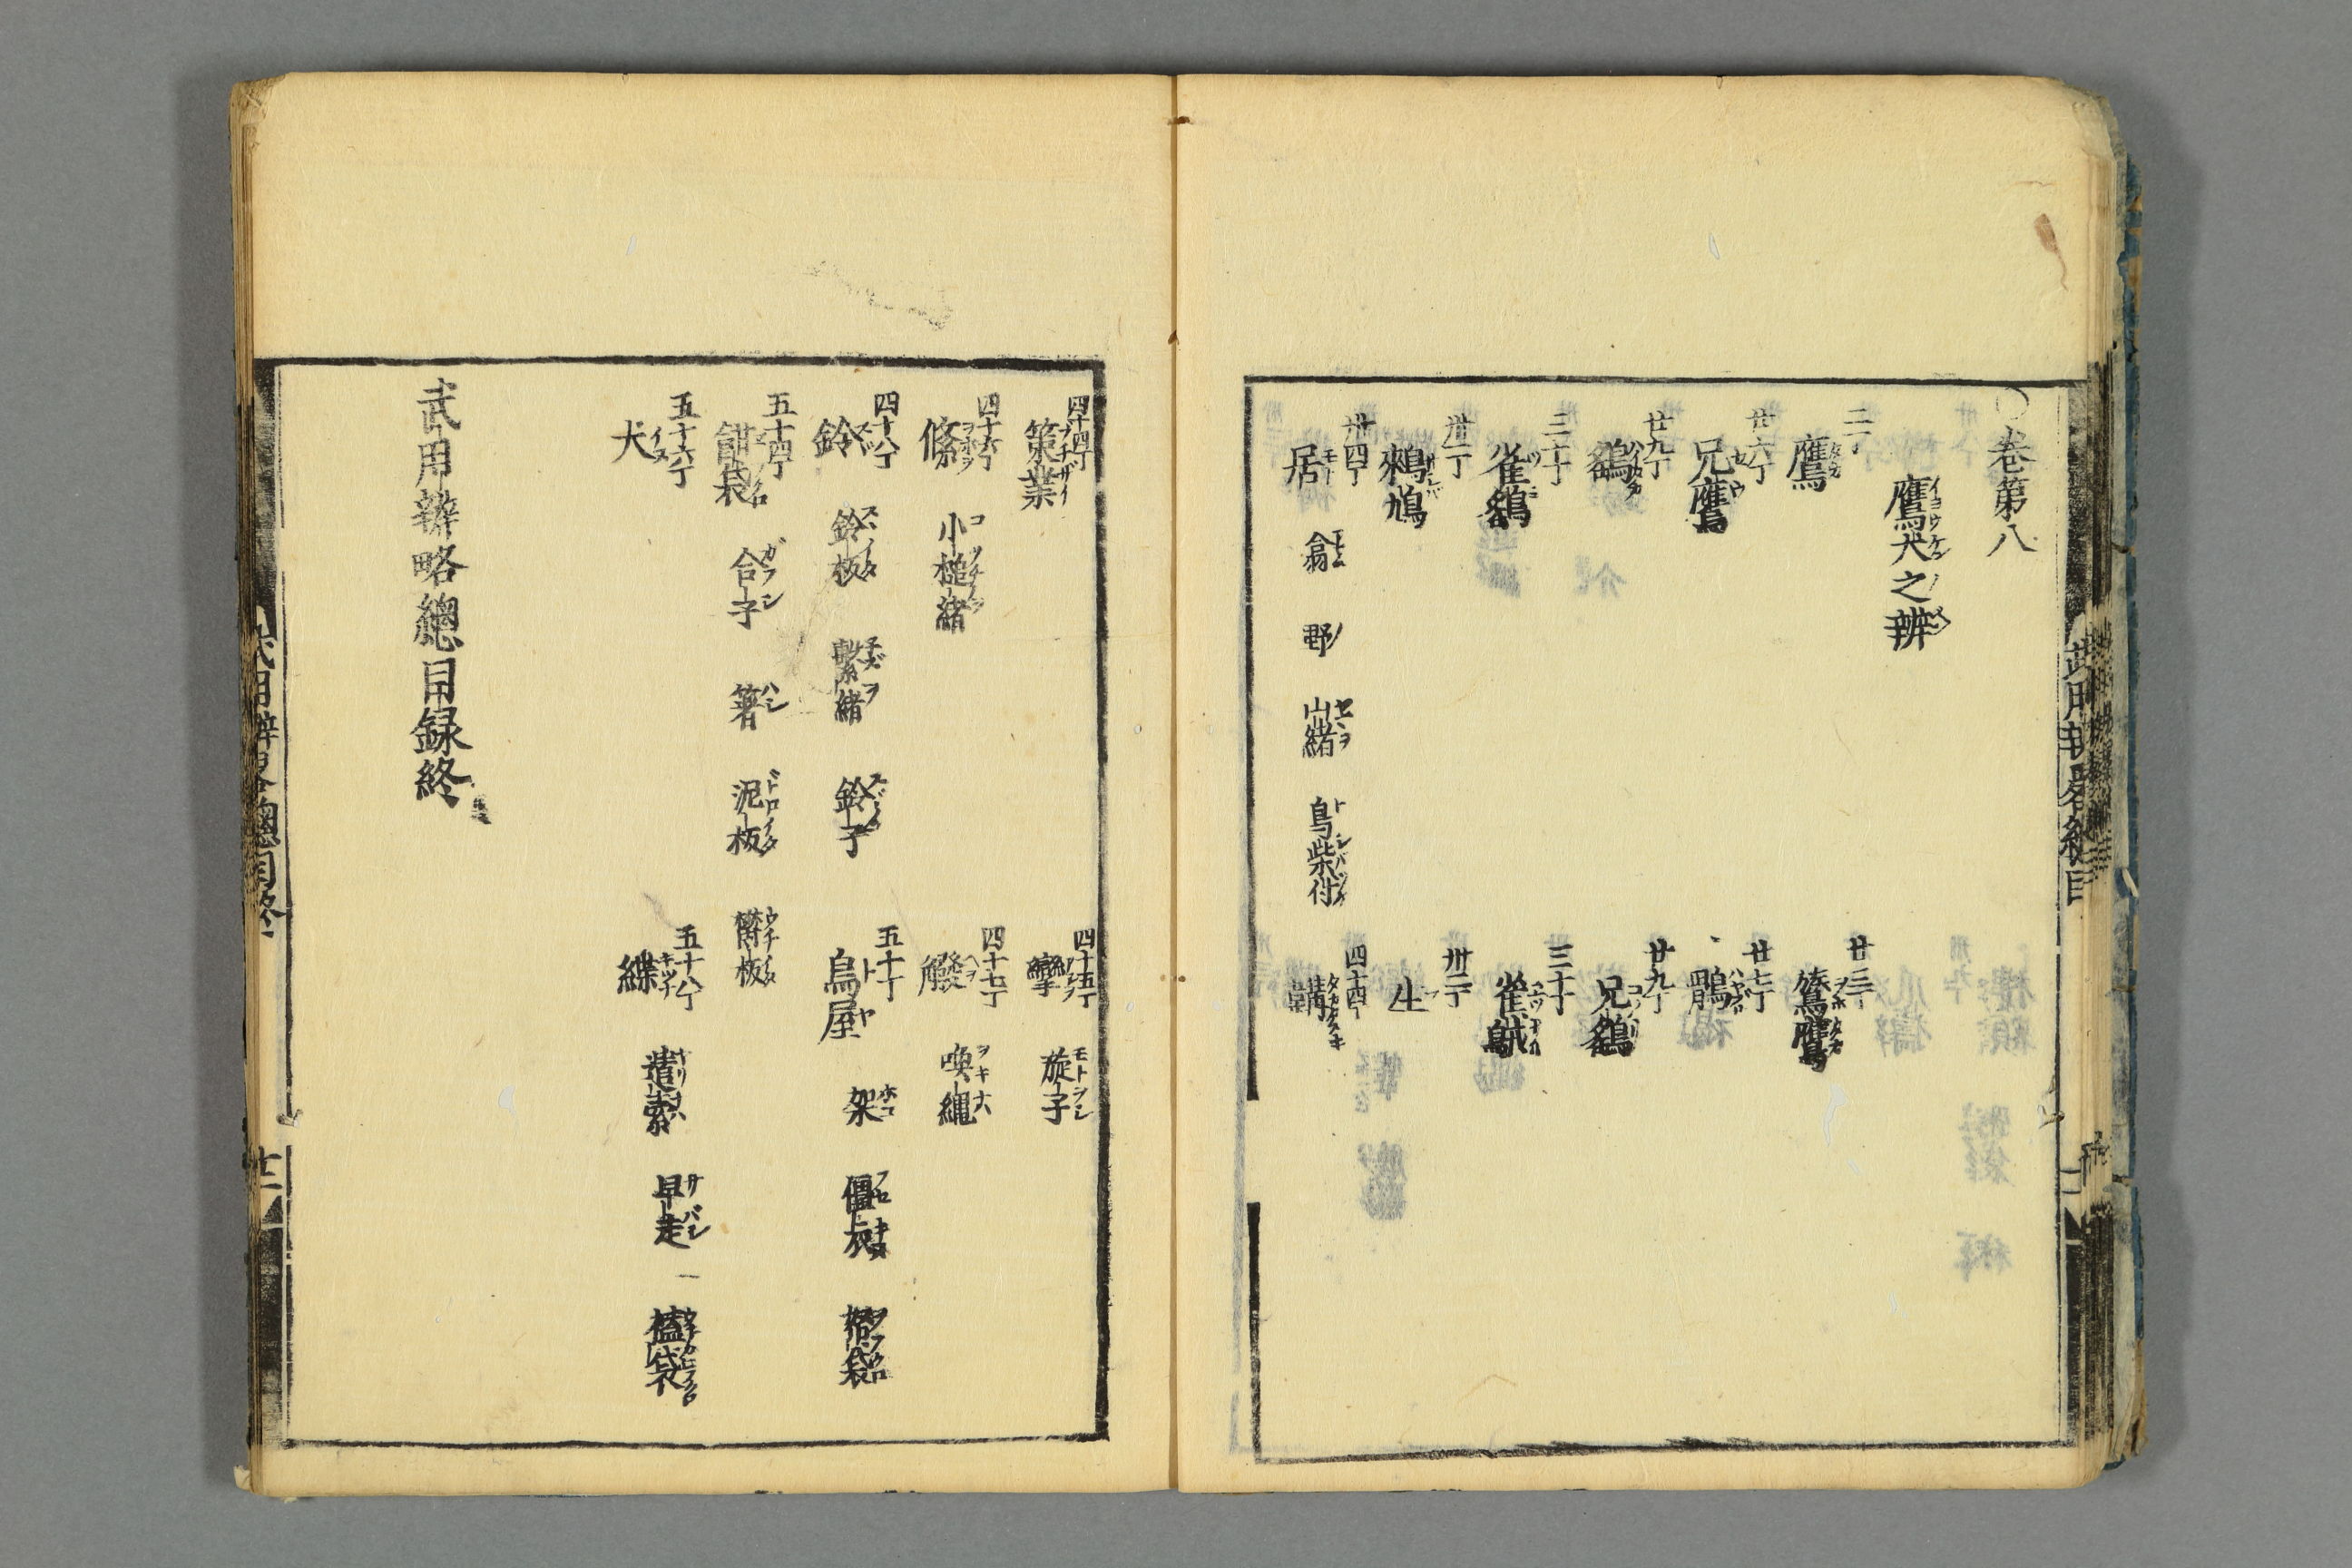 ○卷第八
鷹犬之辨
二丁 鷹 廿三丁 鷹
廿六丁 兄鷹 廿七丁 鶻
廿九丁 鷂 廿九丁 兄鷂
三十丁 雀鷂 三十丁 雀𪀚
卅一丁 鵣鳩 卅二丁 生
卅四丁 居 翕 野 山緒 鳥柴付 四十四丁 韝
四十四丁 策業 四十五丁 攣 旋子
四十六丁 絛 小槌緒 四十七丁 喚繩
四十八丁 鈴 鈴板 繫緒 鈴子 五十丁 鳥屋 架 衣 袋
五十四丁 餌袋 合子 箸 泥板 板
五十六丁 犬 五十八丁 緤 遣索 早走 袋
武用辨略總目録終
武用辨畧總目終 廿二